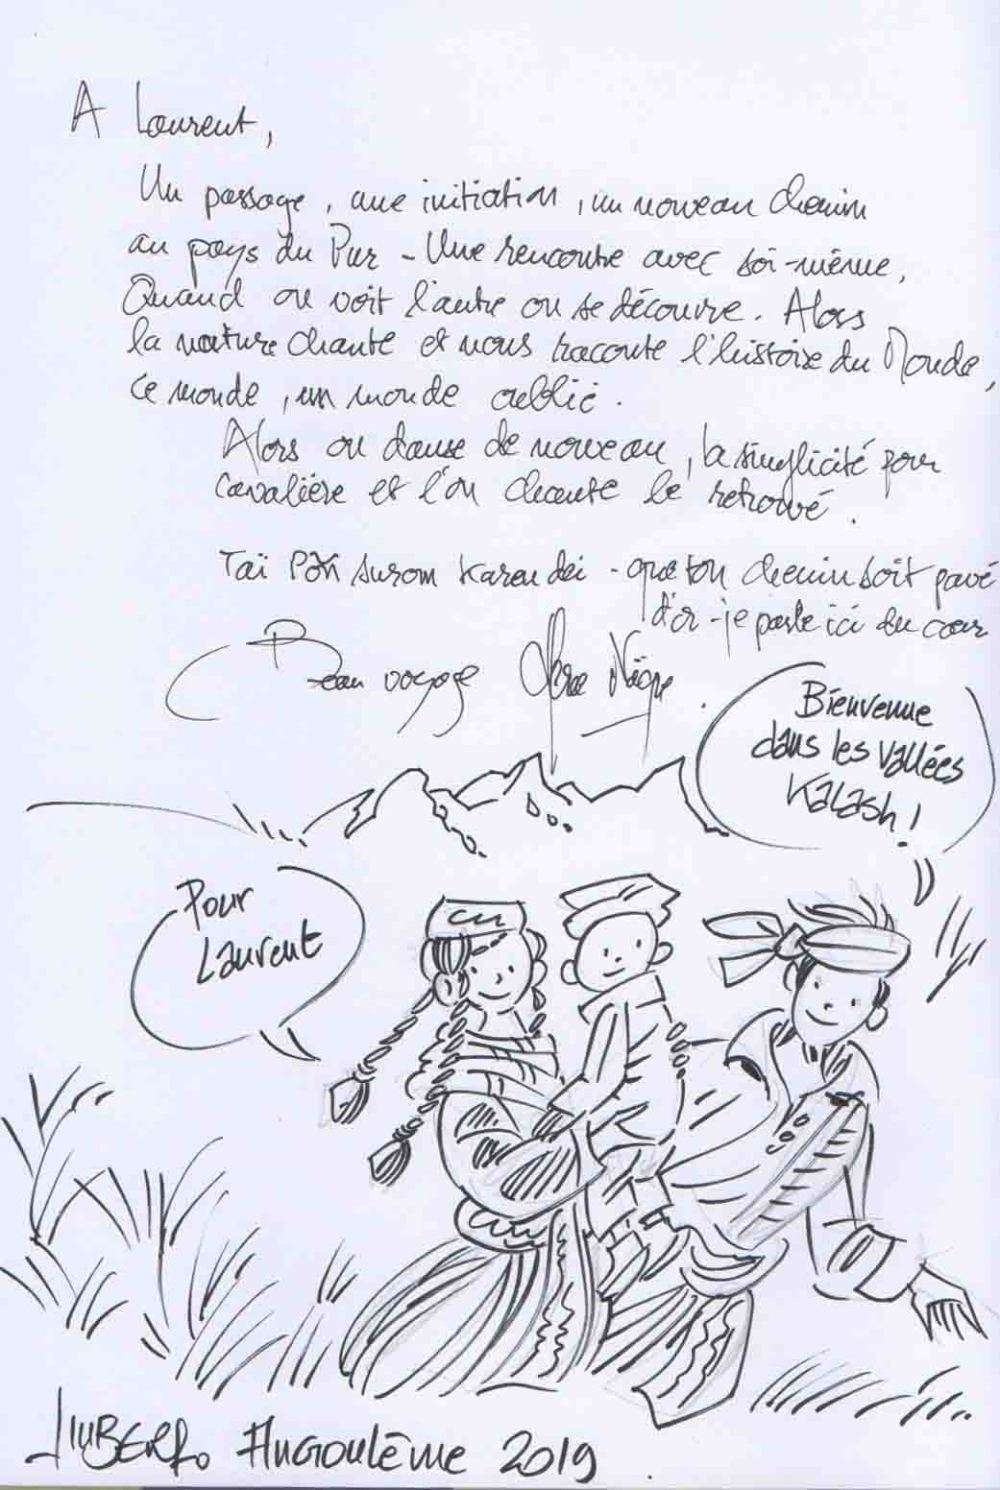 A Laurent,
Un passage, une initiation, un nouveau chemin
au pays du Pur - Une rencontre avec soi-même,
Quand on voit l'autre on se découvre. Alors
la nature chante et nous raconte l'histoire du Monde,
ce monde, un monde oublié.
Alors on danse de nouveau, la simplicité pour
cavalière et l'on chante le retrouvé.
Taï surom Karen dei - que ton chemin soit pavé
d'or - je parle ici du cœur
Beau voyage
Bienvenue
dans les vallées
Kalash !
Pour
Laurent
Angoulême 2019